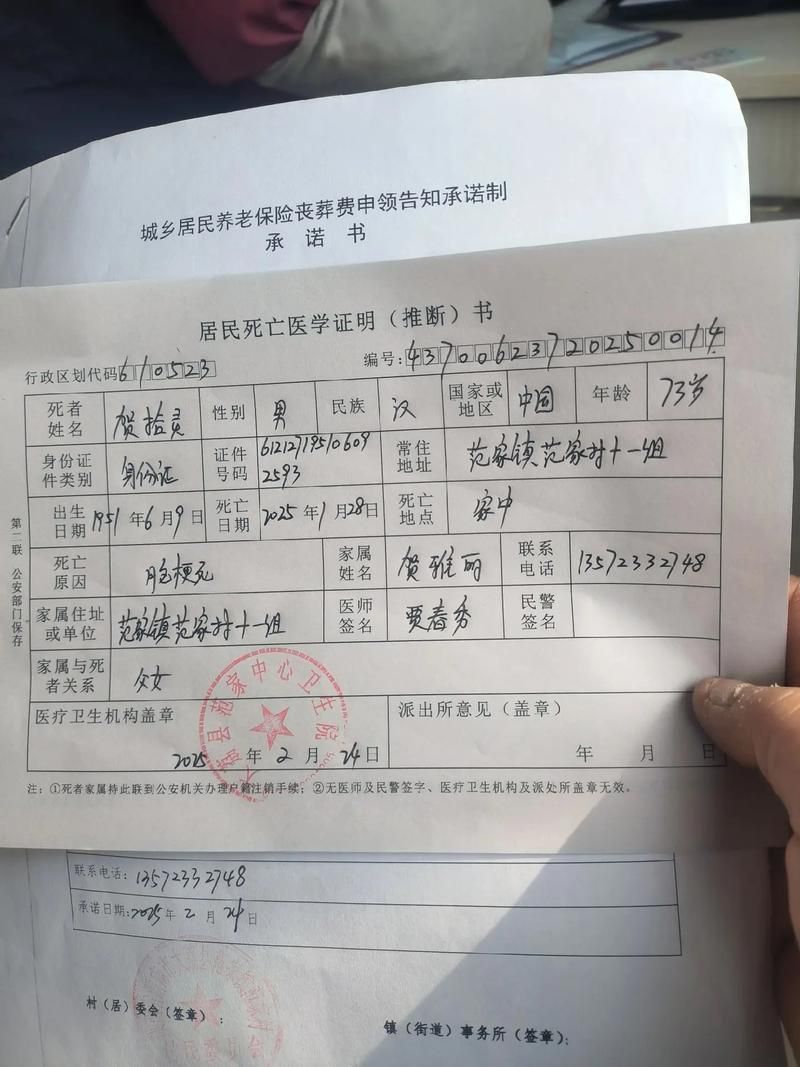 城乡居民养老保险丧葬费申领告知承诺制
承 诺 书
居民死亡医学证明（推断）书
行政区划代码610523
编号:43700623720250014
死者姓名 贺拾灵 性别 男 民族 汉 国家或地区 中国 年龄 73岁
身份证件类别 身份证 证件号码 612127195106092593 常住地址 范家镇范家村十一组
出生日期 1951年6月9日 死亡日期 2025年1月28日 死亡地点 家中
死亡原因 脑梗死 家属姓名 贺雅丽 联系电话 13572332748
家属住址或单位 范家镇范家村十一组 医师签名 贾春秀 民警签名
家属与死者关系 父女
医疗卫生机构盖章 派出所意见（盖章）
县范家中心卫生院
2025年2月24日 年 月 日
注：①死者家属持此联到公安机关办理户籍注销手续；②无医师及民警签字、医疗卫生机构及派处所盖章无效。
第二联 公安部门保存
联系电话：13572332748
承诺日期：2025年2月24日
村（居）委会（签章）：
镇（街道）事务所（签章）：